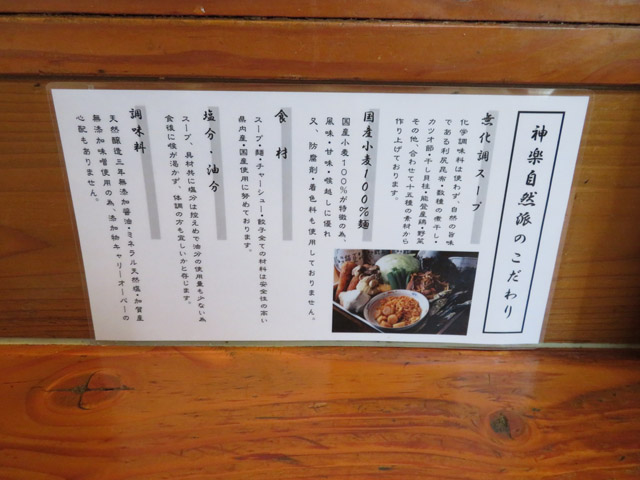 神樂自然派のこだわり
無化調スープ
化学調味料は使わず、自然の旨味
である利尻昆布・数種の煮干し・
カツオ節・干し貝柱・能登産鶏・野菜
その他、合わせて十五種の素材から
作り上げております。
国産小麦100%麺
国産小麦100%が特徴の為、
風味・甘味・喉越しに優れ
又、防腐剤・着色料も使用しておりません。
食材
スープ・麺・チャーシュー・餃子全ての材料は安全性の高い
県内産・国産使用に努めております。
塩分・油分
スープ、具材共に塩分は控えめで油分の使用量も少ない為
食後に喉が渇かず、体調の方も宜しいかと存じます。
調味料
天然醸造三年無添加醤油・ミネラル天然塩・加賀産
無添加味噌使用の為、添加物キャリーオーバーの
心配もありません。